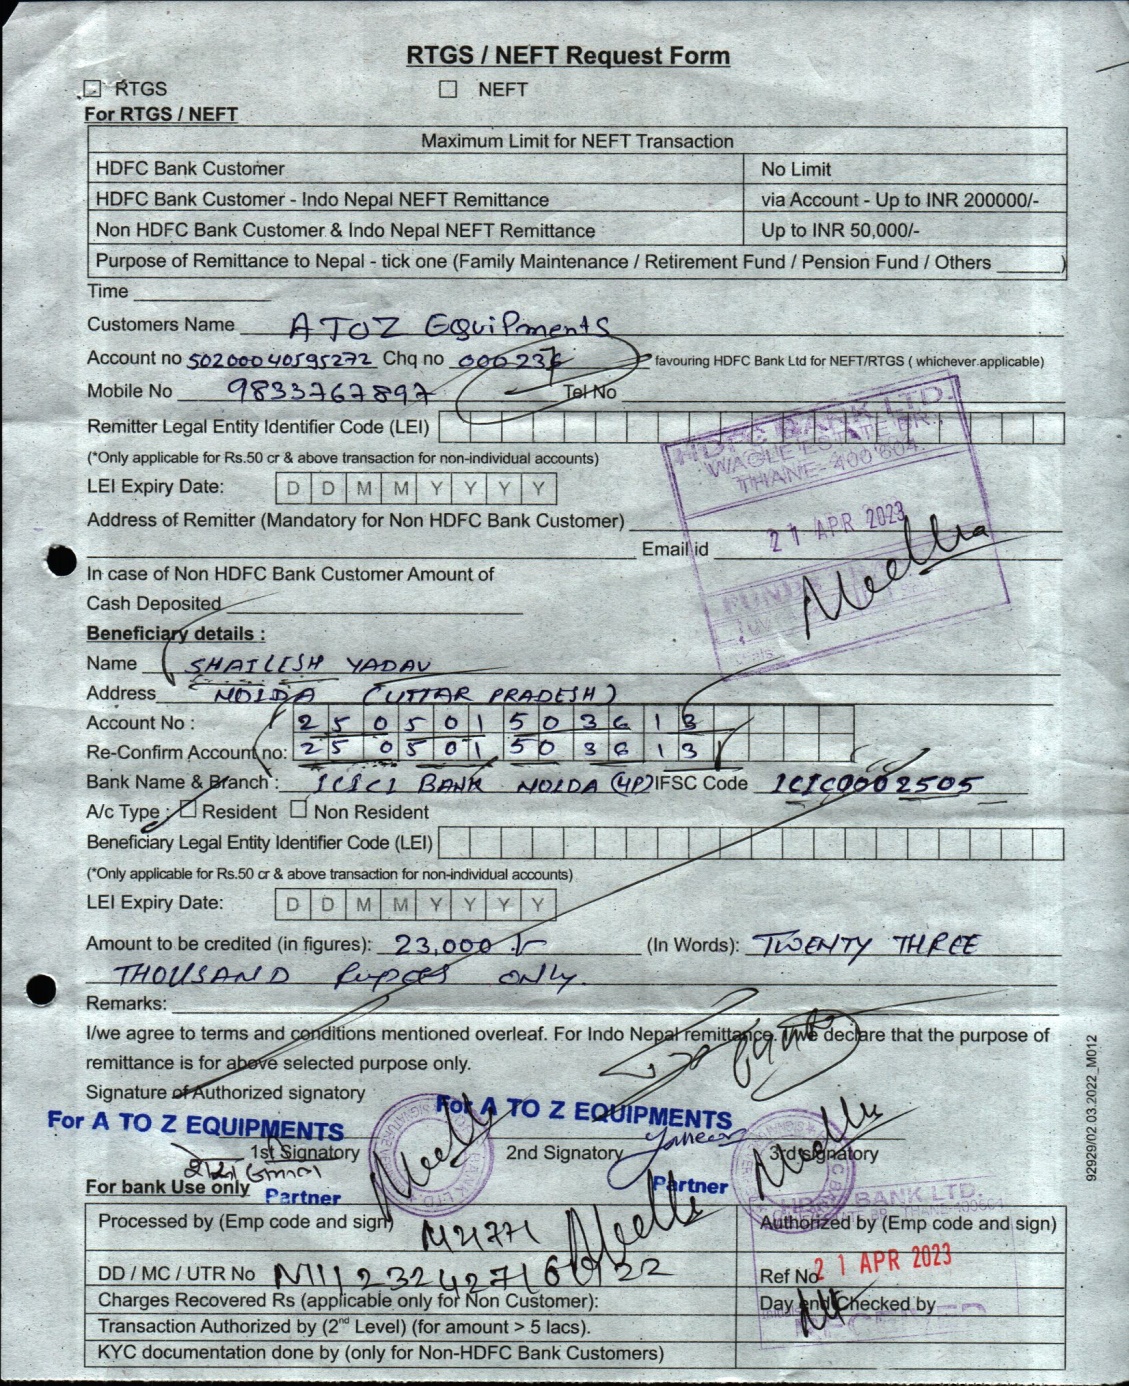 RTGS / NEFT Request Form
☐ RTGS ☐ NEFT
For RTGS / NEFT
Maximum Limit for NEFT Transaction
HDFC Bank Customer No Limit
HDFC Bank Customer - Indo Nepal NEFT Remittance via Account - Up to INR 200000/-
Non HDFC Bank Customer & Indo Nepal NEFT Remittance Up to INR 50,000/-
Purpose of Remittance to Nepal - tick one (Family Maintenance / Retirement Fund / Pension Fund / Others ______)
Time
Customers Name A TO Z EQuiPments
Account no 50200040595272 Chq no 000236 favouring HDFC Bank Ltd for NEFT/RTGS ( whichever applicable)
Mobile No 9833767897 Tel No
Remitter Legal Entity Identifier Code (LEI)
HDFC BANK LTD.
WAGLE ESTATE BR.,
THANE- 400 604.
(*Only applicable for Rs.50 cr & above transaction for non-individual accounts)
LEI Expiry Date: D D M M Y Y Y Y
Address of Remitter (Mandatory for Non HDFC Bank Customer)
21 APR 2023
Email id
In case of Non HDFC Bank Customer Amount of
Cash Deposited
Beneficiary details :
Name SHAILESH YADAV
Address NOIDA (UTTAR PRADESH)
Account No : 250501503613
Re-Confirm Account no: 250501503613
Bank Name & Branch : ICICI BANK NOIDA (UP) IFSC Code ICIC0002505
A/c Type : ☐ Resident ☐ Non Resident
Beneficiary Legal Entity Identifier Code (LEI)
(*Only applicable for Rs.50 cr & above transaction for non-individual accounts)
LEI Expiry Date: D D M M Y Y Y Y
Amount to be credited (in figures): 23,000/- (In Words): TWENTY THREE
THOUSAND Rupees ONLY.
Remarks:
I/we agree to terms and conditions mentioned overleaf. For Indo Nepal remittance. I/we declare that the purpose of
remittance is for above selected purpose only.
Signature of Authorized signatory
For A TO Z EQUIPMENTS For A TO Z EQUIPMENTS
1st Signatory 2nd Signatory 3rd signatory
Partner Partner
For bank Use only
HDFC BANK LTD.
Processed by (Emp code and sign) Authorized by (Emp code and sign)
DD / MC / UTR No Ref No
21 APR 2023
Charges Recovered Rs (applicable only for Non Customer): Day end Checked by
Transaction Authorized by (2nd Level) (for amount > 5 lacs).
KYC documentation done by (only for Non-HDFC Bank Customers)
92929/02.03.2022_M012